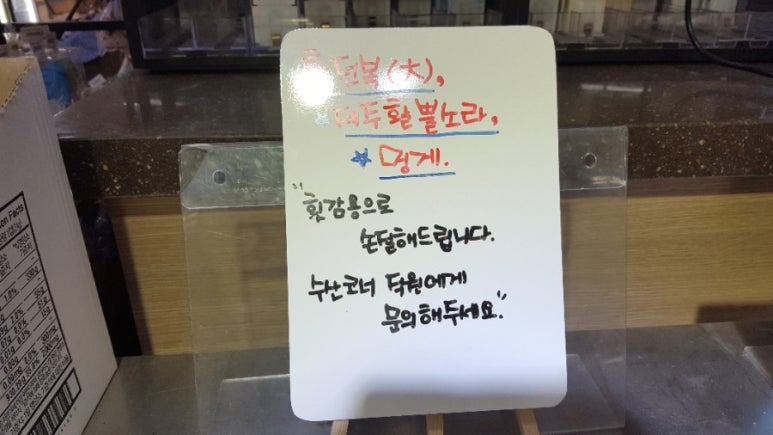 전복(大),
제주활뿔소라,
★ 멍게.
"횟감용으로
손질해드립니다.
수산코너 직원에게
문의해주세요."
Facts